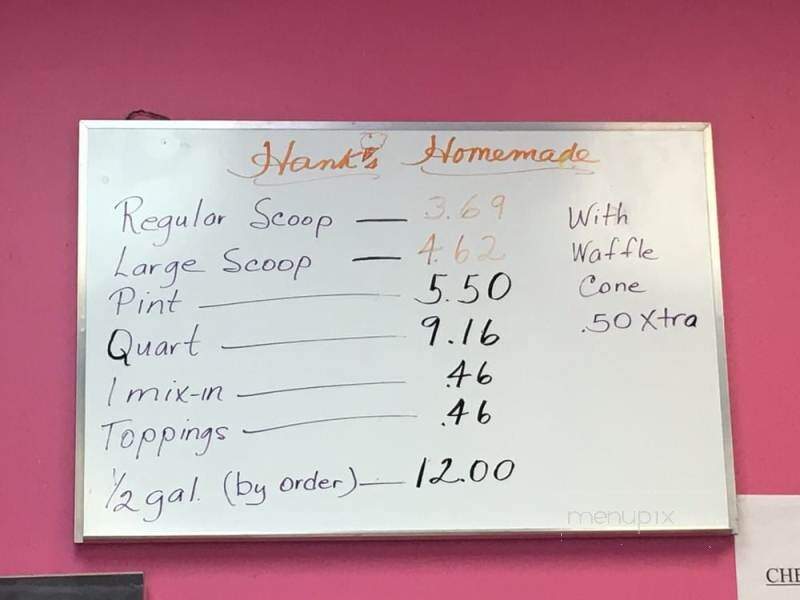 Hank's Homemade
Regular Scoop — 3.69
Large Scoop — 4.62
Pint — 5.50
Quart — 9.16
1 mix-in — .46
Toppings — .46
1/2 gal. (by order) — 12.00
With
Waffle
Cone
.50 Xtra
menupix
CHE